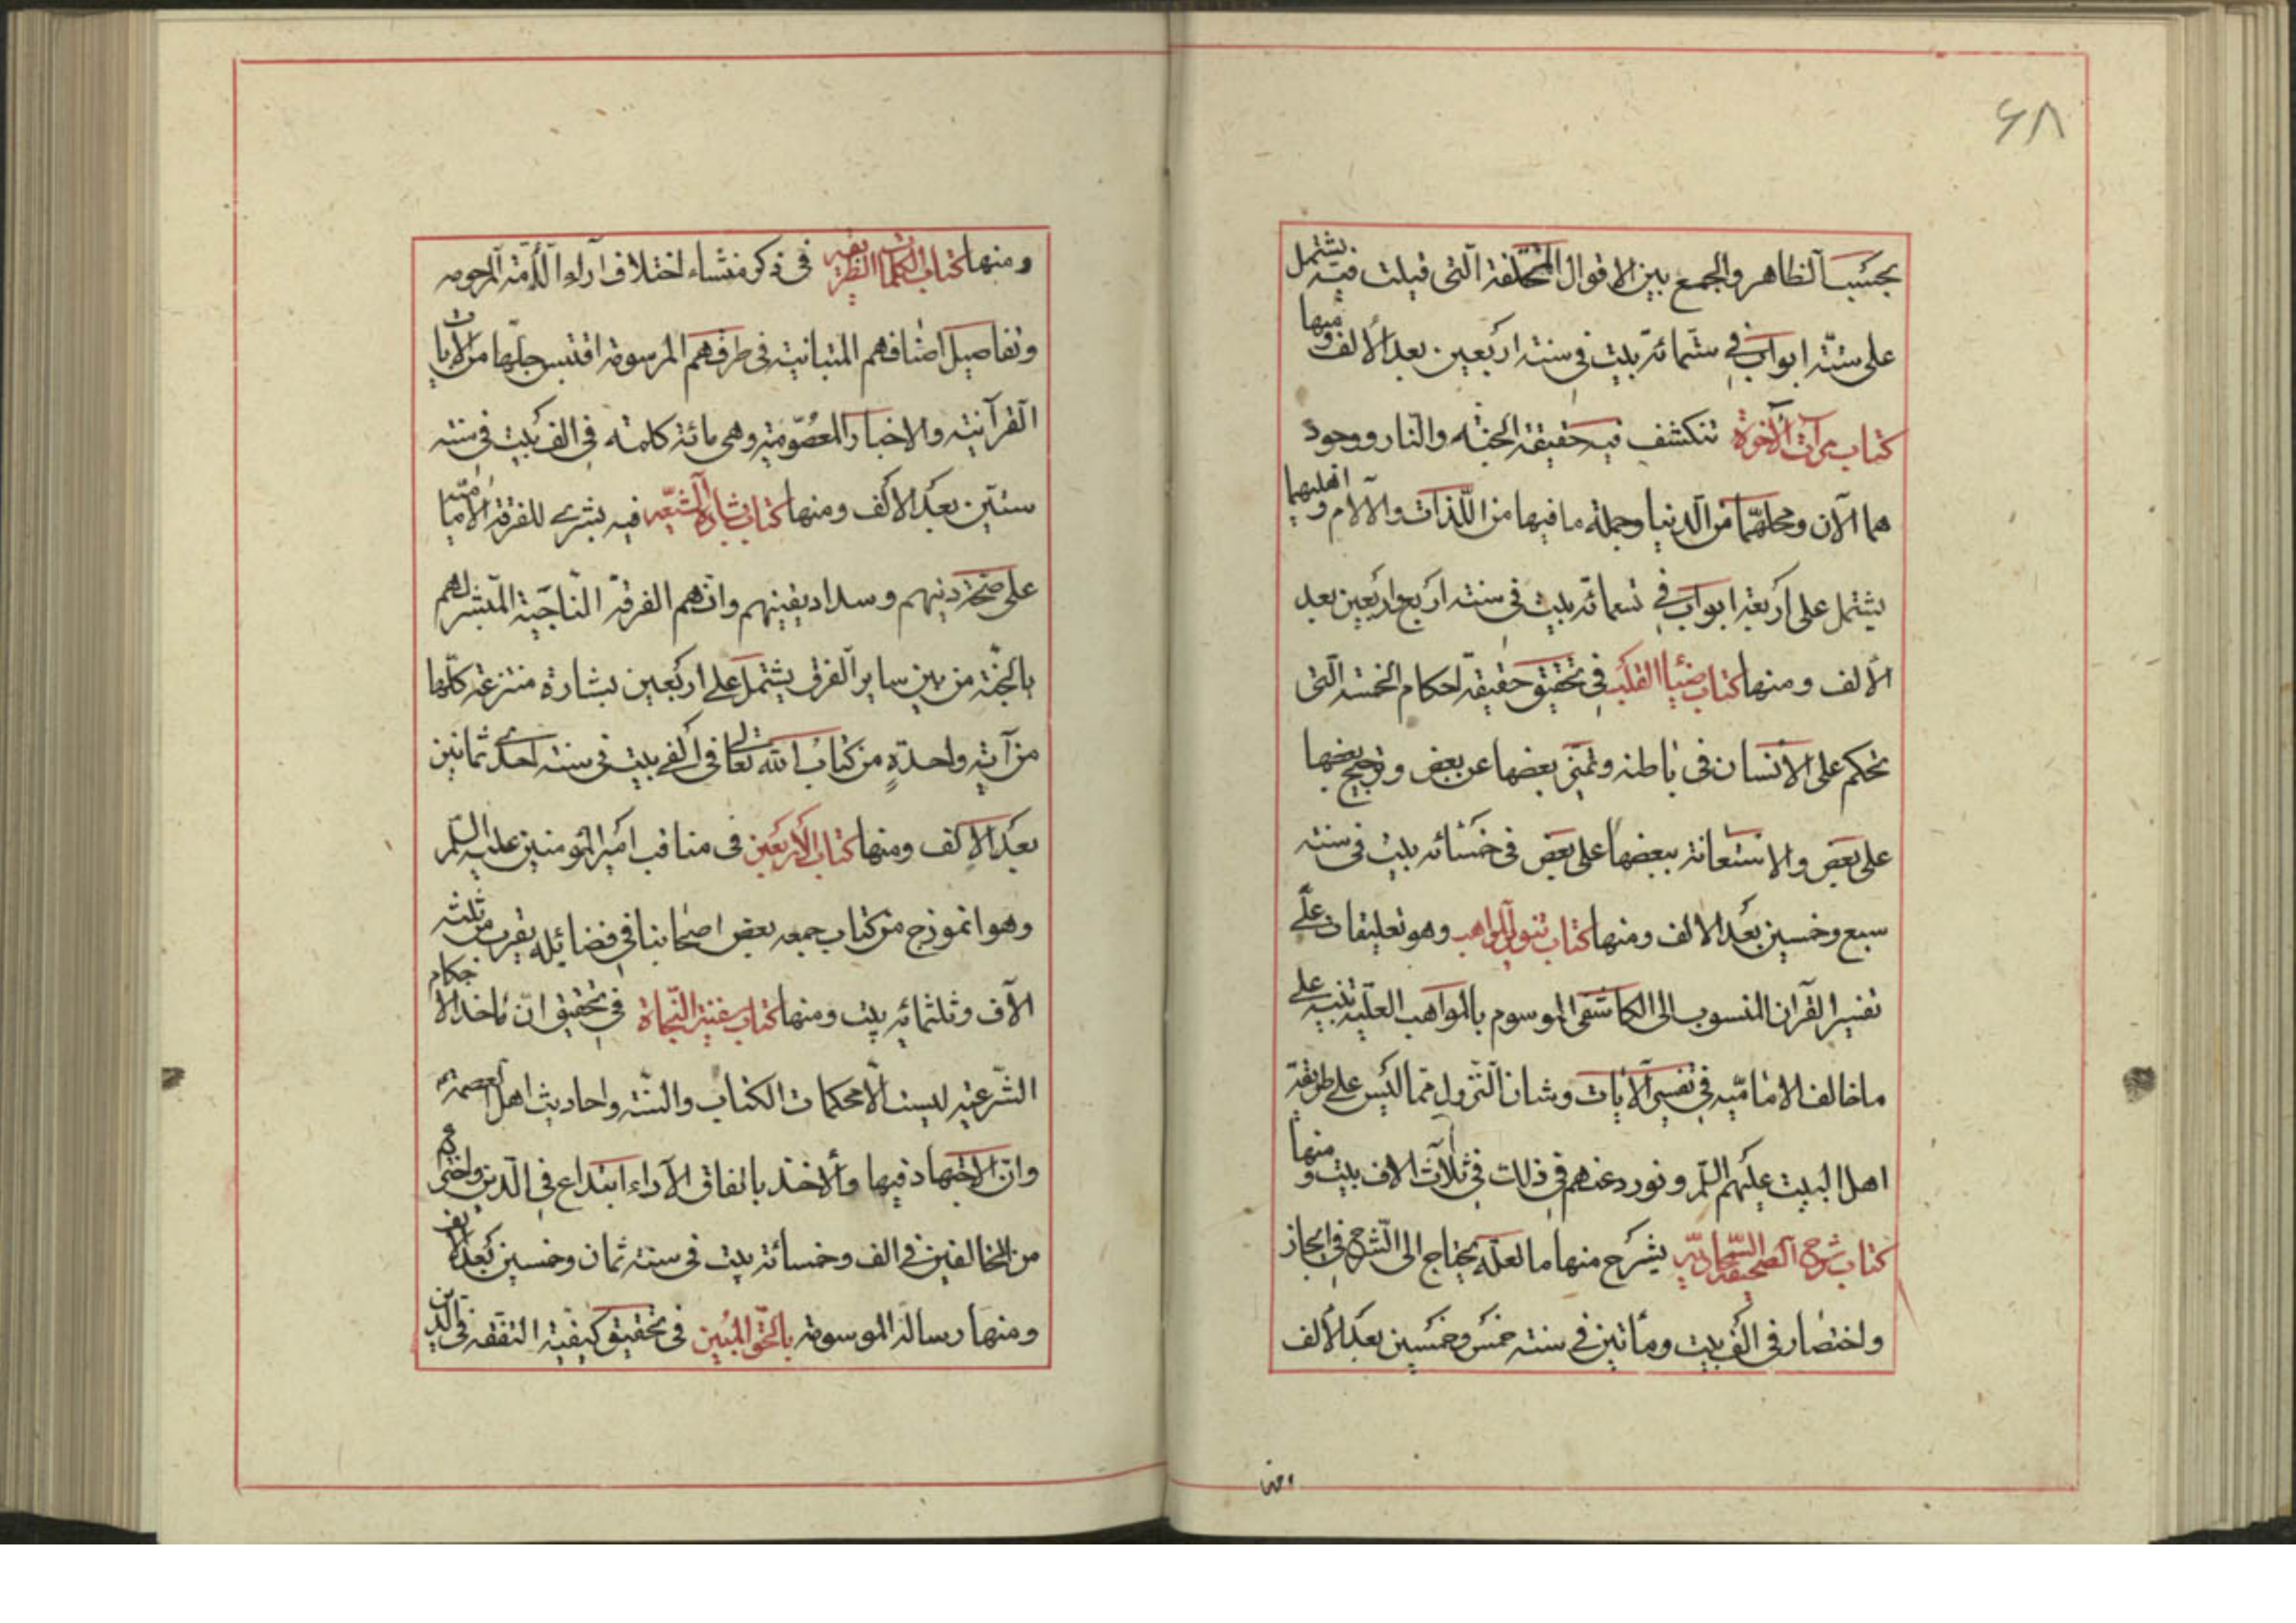 ۶۸
بحسب الظاهر والجمع بين الاقوال المختلفة الّتى قيلت فيه يشتمل
على ستّة ابواب فى ستمائة بيت فى سنة اربعين بعد الالف ومنها
كتاب مرآت الآخرة تنكشف فيه حقيقة الجنّة والنار ووجود
هما الآن ومحلهما من الدنيا وجملة ما فيها من اللّذات والآلام واهليهما
يشتمل على اربعة ابواب فى تسعمائة بيت فى سنة اربع واربعين بعد
الألف ومنها كتاب ضياء القلب فى تحقيق حقيقة احكام الخمسة الّتى
تحكم على الانسان فى باطنه وتميّز بعضها عن بعض وترجيح بعضها
على بعض والاستعانة ببعضها على بعض فى خمسمائة بيت فى سنة
سبع وخمسين بعد الالف ومنها كتاب تنوير المواهب وهو تعليقات على
تفسير القرآن المنسوب الى الكاشفى الموسوم بالمواهب العليّة تنبيه على
ما خالف الاماميّه فى تفسير الآيات وشان النّزول ممّا ليس على طريقة
اهل البيت عليهم السّلم ونورد عنهم فى ذلك فى ثلاث الاف بيت ومنها
كتاب شرح الصحيفة السّجاديّه يشرح منها ما لعلّه يحتاج الى الشّرح فى ايجاز
واختصار فى الف بيت ومأتين فى سنة خمس وخمسين بعد الألف
ومنها
ومنها كتاب الكلمات الطريفة فى ذكر منشاء اختلاف آراء الأمّة المرحومه
وتفاصيل اصنافهم المتباينة فى طرفهم المرسومة اقتبس جلّها من الآيات
القرآنيّه والاخبار المعصوميّة وهى مائة كلمة فى الف بيت فى سنة
ستّين بعد الالف ومنها كتاب بشارة الشيعه فيه بشرى للفرقة الاماميّه
على صحّة دينهم وسداد يقينهم وانّهم الفرقة النّاجية المبشر لهم
بالجنّة من بين ساير الفرق يشتمل على اربعين بشارة منتزعة كلّها
من آية واحدةٍ من كتاب الله تعالى فى الفى بيت فى سنة احدى ثمانين
بعد الالف ومنها كتاب الأربعين فى مناقب امير المؤمنين عليه السّلم
وهو انموذج من كتاب جمعه بعض اصحابنا فى فضائله يقرب من ثلثة
الآف وثلثمائه بيت ومنها كتاب سفينة النّجاة فى تحقيق انّ مأخذ الاحكام
الشّرعيّه ليست الّا محكمات الكتاب والسّنّة واحاديث اهل العصمة
وانّ الاجتهاد فيها والأخذ باتفاق الآراء ابتداع فى الدّين واختراع
من المخالفين فى الف وخمسمائة بيت فى سنة ثمان وخمسين بعد الالف
ومنها رسالة الموسومة بالحقّ المبين فى تحقيق كيفيّة التفقه فى الدّين